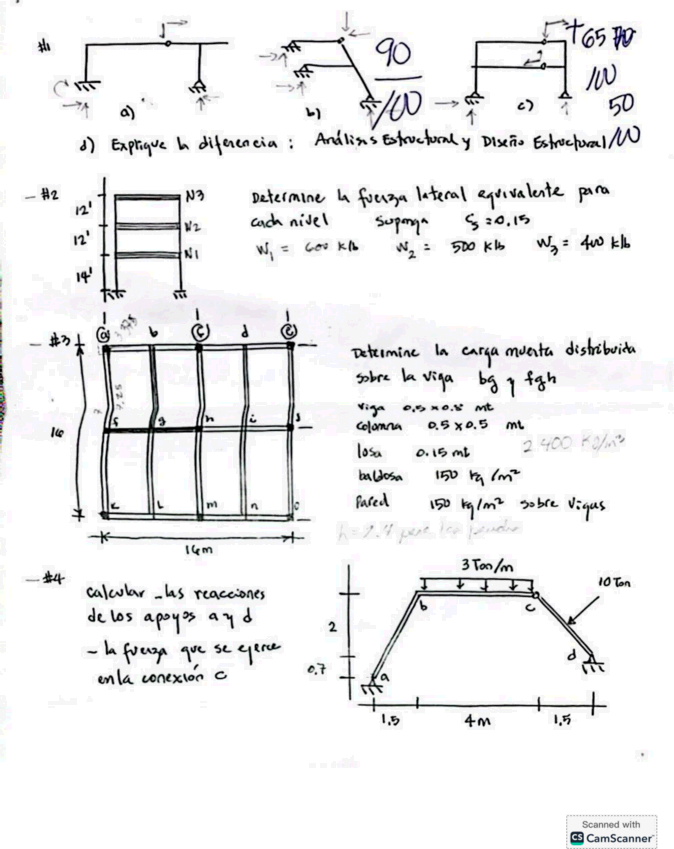 #1
a)
b)
c)
90
/100
+65
100
50
100
d) Explique la diferencia: Análisis Estructural y Diseño Estructural
- #2
12'
12'
14'
N3
N2
N1
Determine la fuerza lateral equivalente para
cada nivel suponga = 0.15
W1 = 600 klb W2 = 500 klb W3 = 400 klb
- #3
a b c d e
f g h i j
k l m n o
16
16m
Determine la carga muerta distribuida
sobre la viga bg y fgh
viga 0.5 x 0.5 mt
columna 0.5 x 0.5 mt
losa 0.15 mt
2 400
baldosa 150 kg/m²
Pared 150 kg/m² sobre vigas
- #4
calcular - las reacciones
de los apoyos a y d
- la fuerza que se ejerce
en la conexión c
3 Ton/m
10 Ton
2
0.7
a
b
c
d
1.5
4m
1.5
Scanned with
CS CamScanner